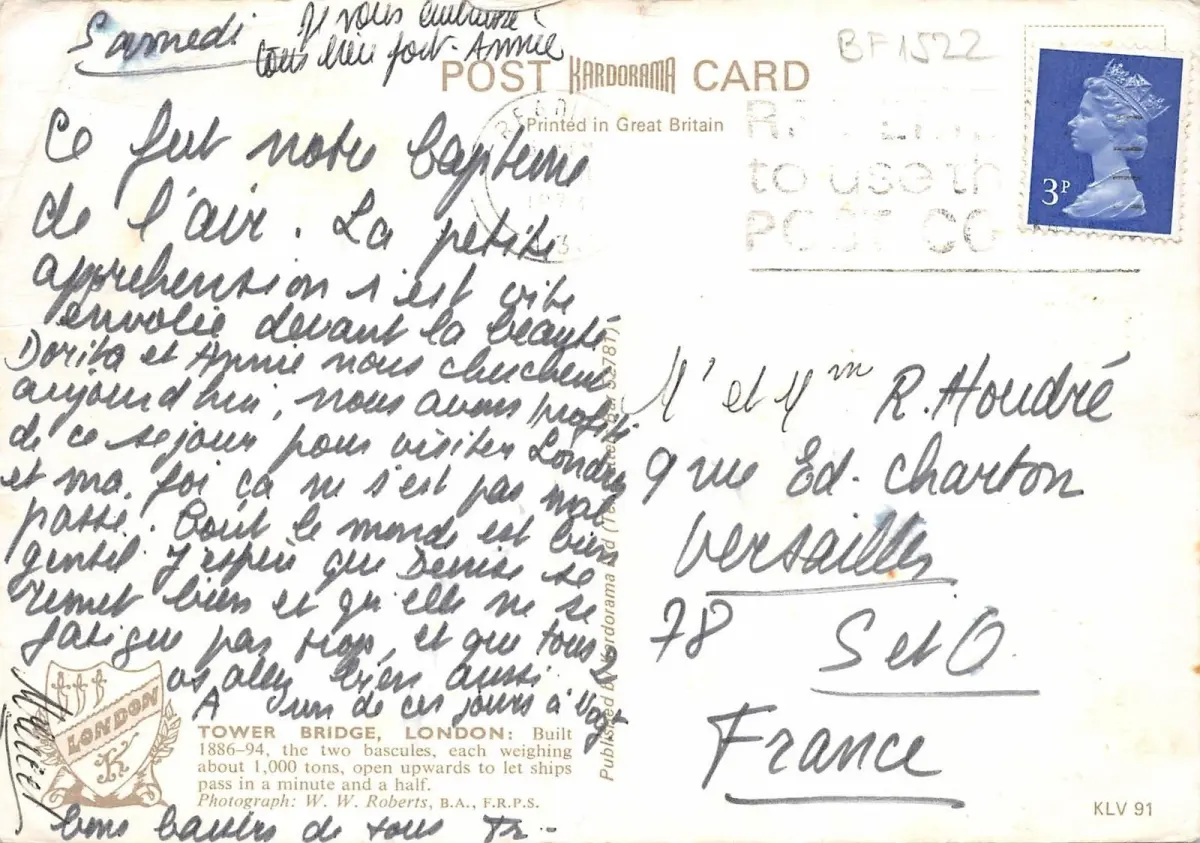 Samedi
Je vous embrasse
tous bien fort - Annie
BF1522
POST KARDORAMA CARD
Printed in Great Britain
3P
to use th
POST CO
Ce fut notre bapteme
de l'air. La petite
apprehension s'est vite
envolée devant la beauté
Dorita et Annie nous cherchent
aujourd'hui, nous avons profité
de ce sejour pour visiter Londres
et ma foi ça ne s'est pas mal
passé. Tout le monde est bien
gentil. J'espere que Denise se
remet bien et qu'elle ne se
fatigue pas trop, et que tous
vous allez bien aussi.
A un de ces jours à
bons baisers de tous
LONDON
K
TOWER BRIDGE, LONDON: Built
1886-94, the two bascules, each weighing
about 1,000 tons, open upwards to let ships
pass in a minute and a half.
Photograph: W. W. Roberts, B.A., F.R.P.S.
Published by Kardorama Ltd
Mr et Mme R. Houdré
9 rue Ed. Charton
Versailles
78 S et O.
France
KLV 91